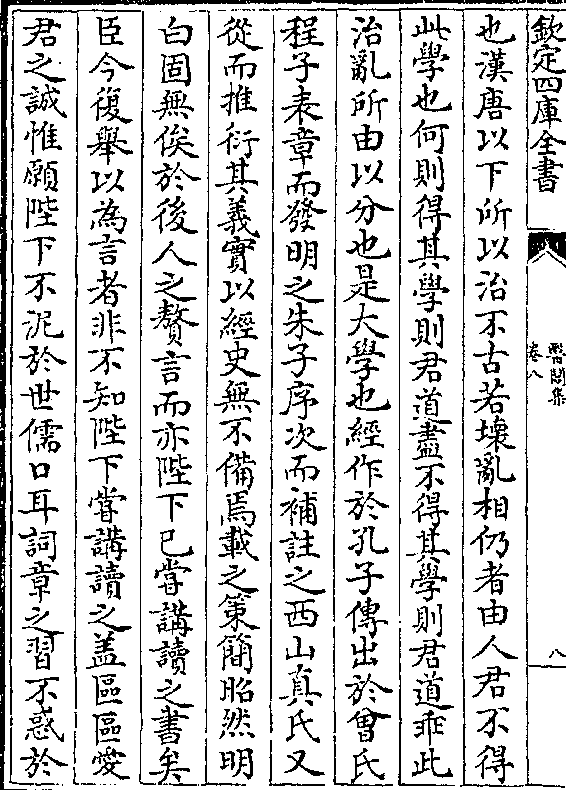 欽定四庫全書
醫閭集
卷八
八
也漢唐以下所以治不古若壞亂相仍者由人君不得
此學也何則得其學則君道盡不得其學則君道乖此
治亂所由以分也是大學也經作於孔子傳出於曾氏
程子表章而發明之朱子序次而補註之西山真氏又
從而推衍其義實以經史無不備焉載之策簡昭然明
白固無俟於後人之贅言而亦陛下已嘗講讀之書矣
臣今復舉以為言者非不知陛下嘗講讀之盖區區愛
君之誠惟願陛下不泥於世儒口耳詞章之習不惑於